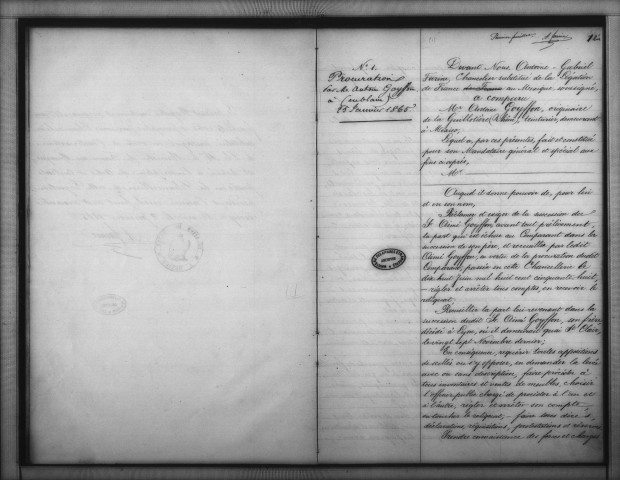 N.° 1.
Procuration
par M. Antoine Goyffon
à (en blanc)
5 Janvier 1865
Devant Nous Antoine-Gabriel
Farine, Chancelier substitué de la Légation
de France au Mexique, soussigné,
a comparu
Mr. Antoine Goyffon, originaire
de la Guillotière (Rhône), teinturier, demeurant
à Mexico,
Lequel a, par ces présentes, fait et constitué
pour son Mandataire général et spécial aux
fins ci-après,
Mr
Auquel il donne pouvoir de, pour lui
et en son nom,
Réclamer et exiger de la succession du
Sr. Aimé Goyffon, avant tout prélèvement,
la part qui est échue au Comparant dans la
succession de son père, et recueillie par ledit
Aimé Goyffon, en vertu de la procuration dudit
Comparant, passée en cette Chancellerie le
dix huit Juin mil huit cent cinquante huit,
- régler et arrêter tous comptes, en recevoir le
reliquat.
Recueillir la part lui revenant dans la
succession dudit Sr. Aimé Goyffon, son frère,
décédé à Lyon, où il demeurait quai St. Clair,
le vingt sept Novembre dernier;
En conséquence, requérir toutes appositions
de scellés ou s'y opposer, en demander la levée
avec ou sans description, faire procéder à
tous inventaires et ventes de meubles, choisir
l'officier public chargé de procéder à l'un et
à l'autre, régler et arrêter son compte,
en toucher le reliquat, - faire tous dires,
déclarations, réquisitions, protestations et réserves
Prendre connaissance des forces et charges